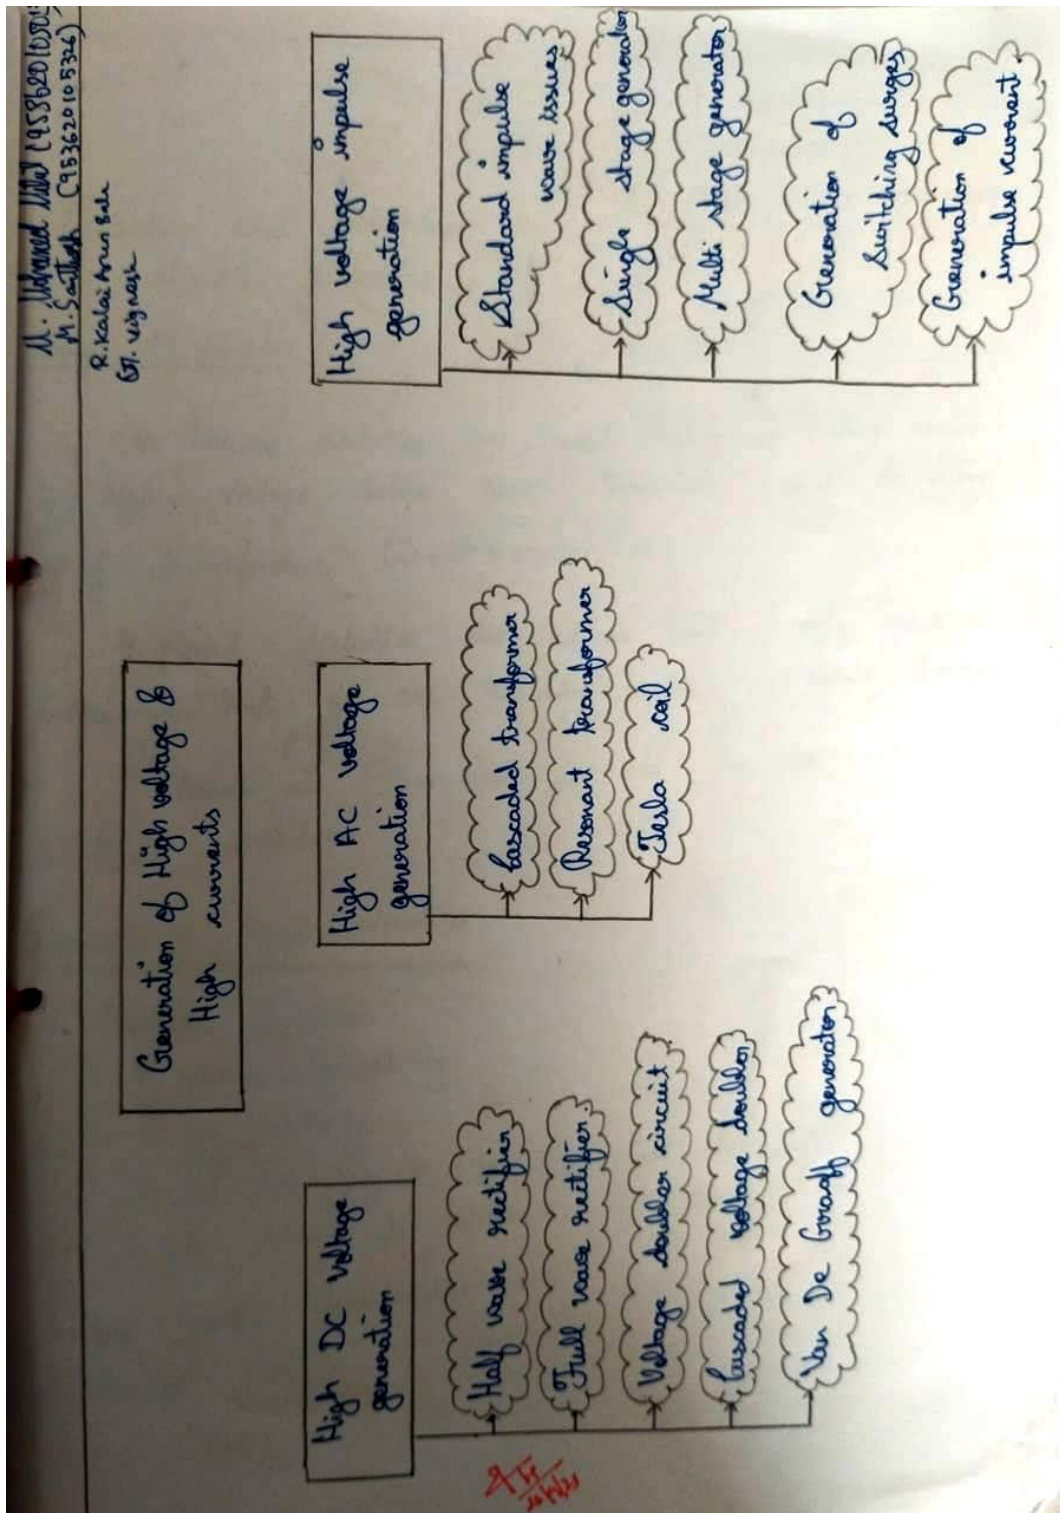 M. Mohamed
M. Santhosh (953620105326)
R. Kalai Arun Bala
G. Vignesh
Generation of High voltage &
High currents
High DC voltage
generation
Half wave rectifier
Full wave rectifier
Voltage doubler circuit
Cascaded voltage doubler
Van De Graaff generator
High AC voltage
generation
Cascaded transformer
Resonant transformer
Tesla coil
High voltage impulse
generation
Standard impulse
wave issues
Single stage generator
Multi stage generator
Generation of
switching surges
Generation of
impulse current